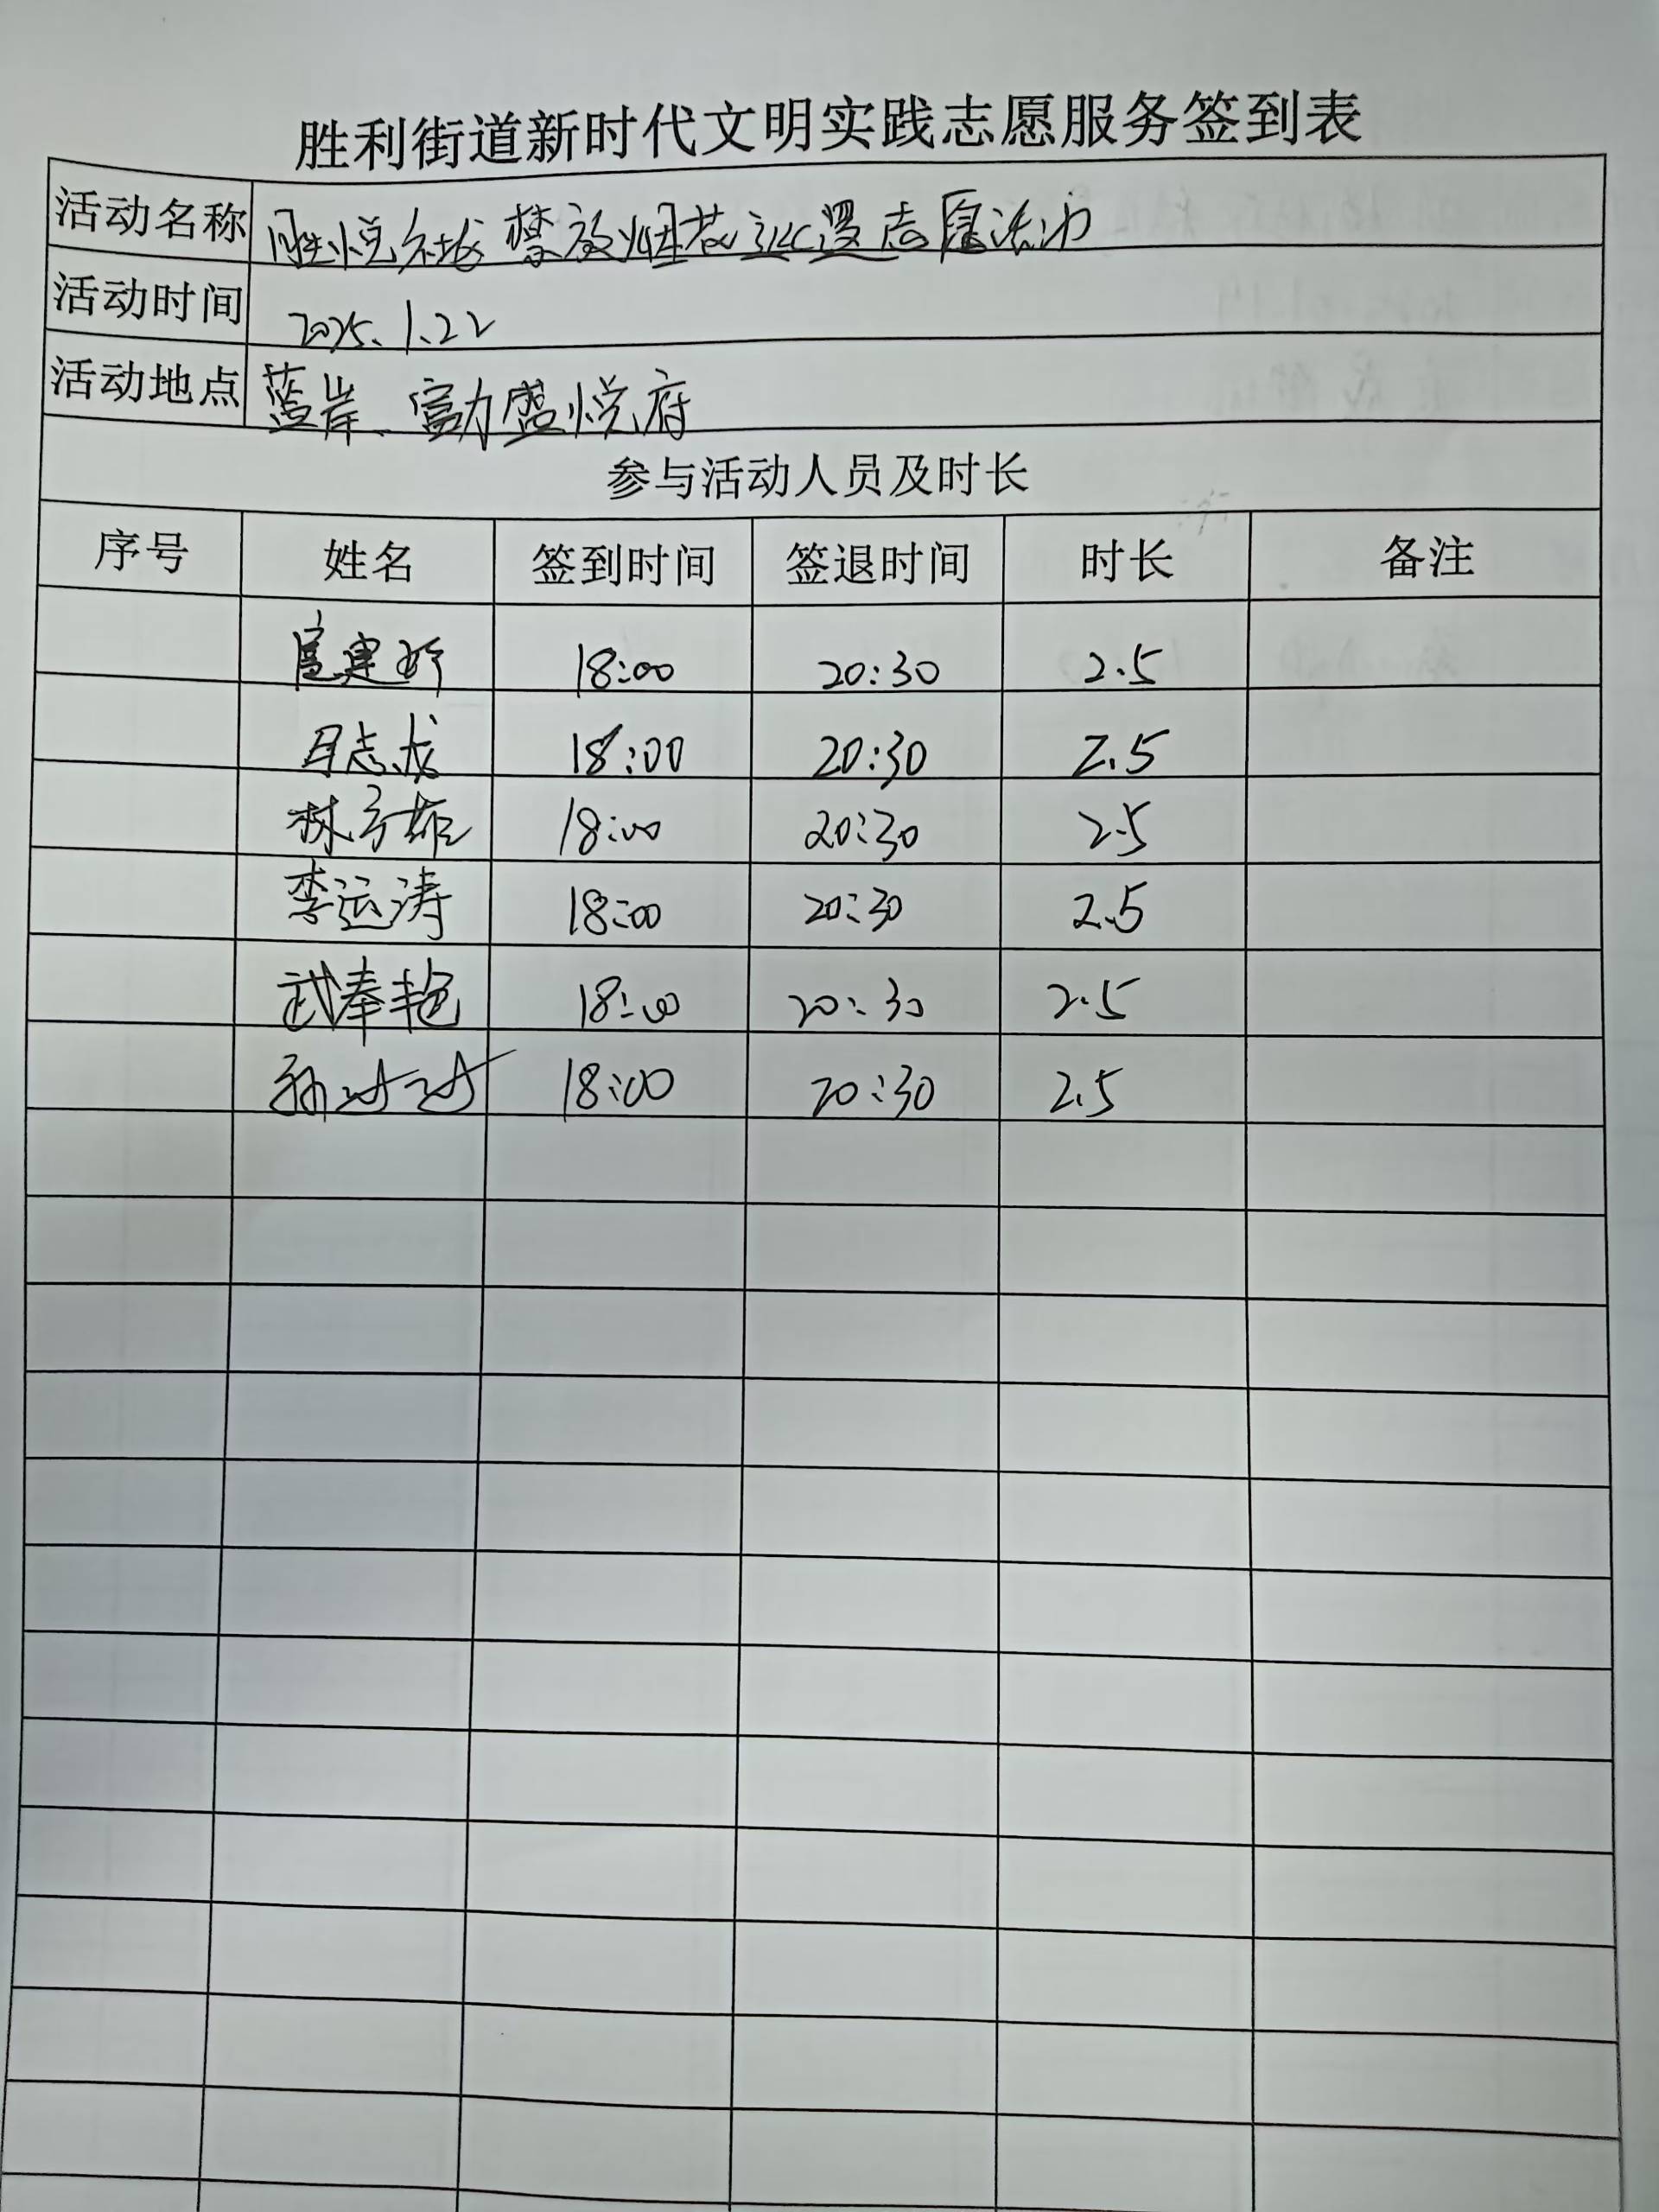 胜利街道新时代文明实践志愿服务签到表
活动名称 胜悦社区禁放烟花巡逻志愿活动
活动时间 2025.1.22
活动地点 蓝岸、富力盛悦府
参与活动人员及时长
序号 姓名 签到时间 签退时间 时长 备注
18:00 20:30 2.5
志龙 18:00 20:30 2.5
林 雄 18:00 20:30 2.5
李运涛 18:00 20:30 2.5
武奉艳 18:00 20:30 2.5
孙 18:00 20:30 2.5